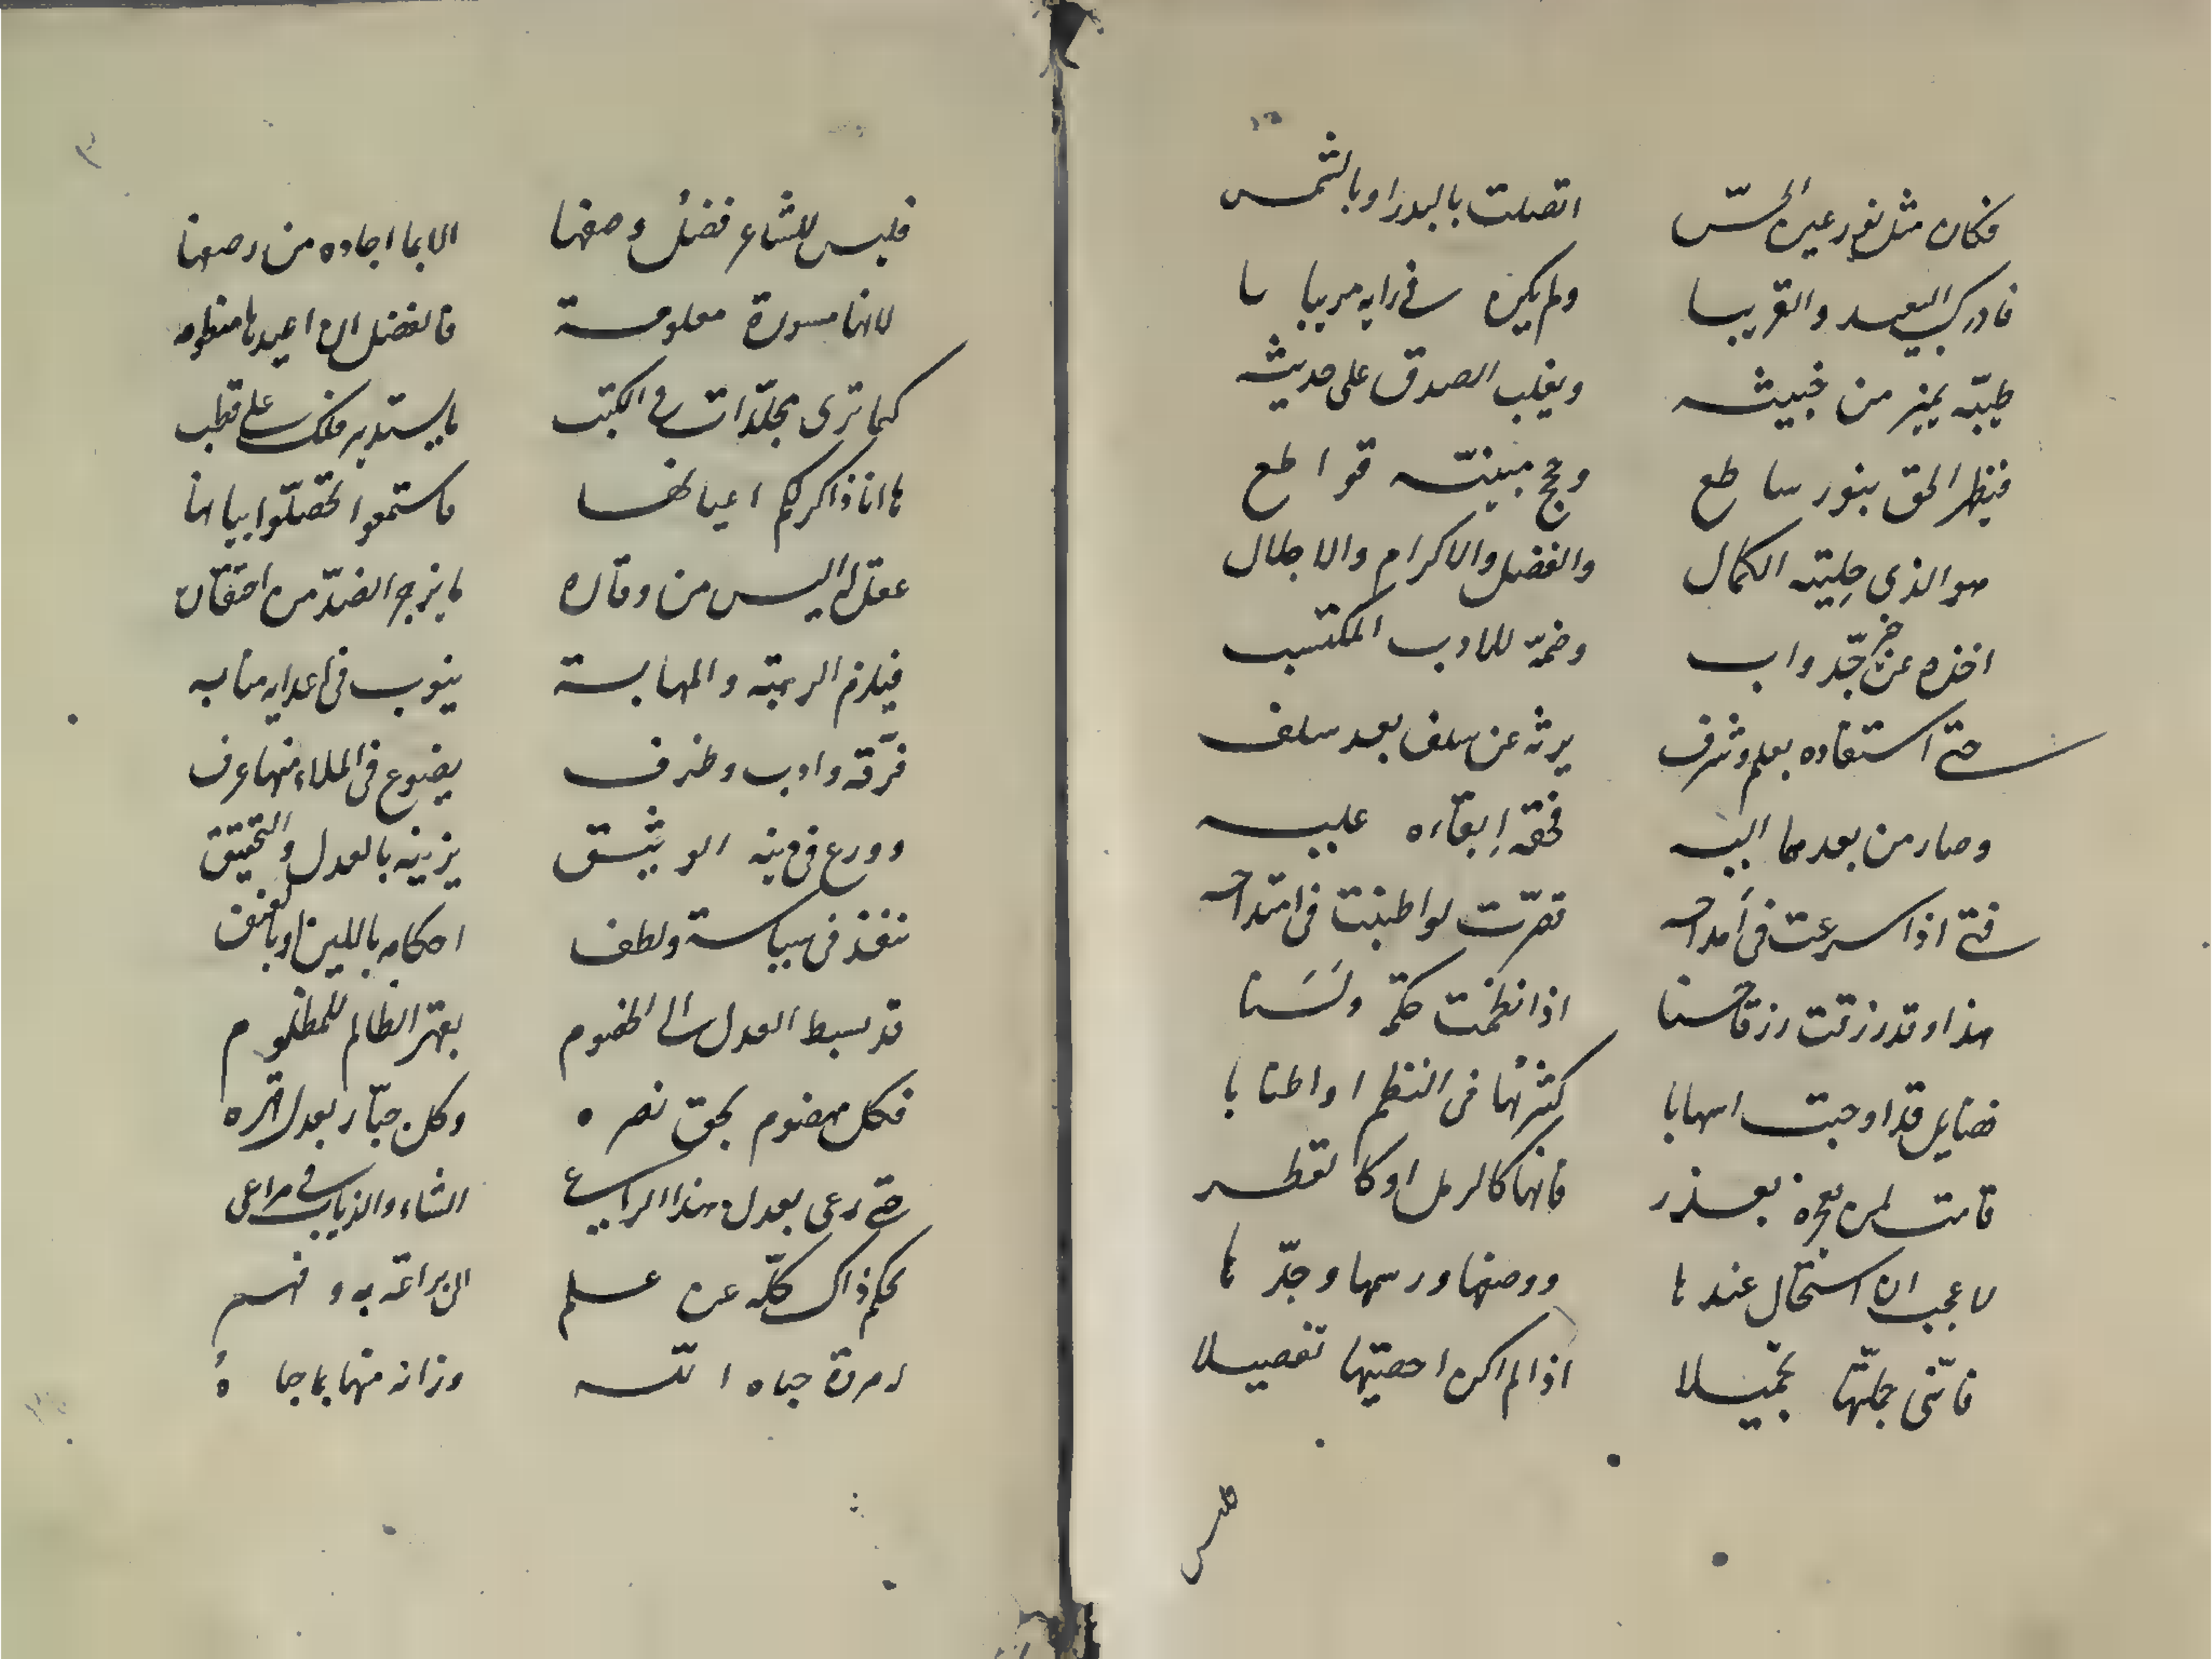 فكان مثل نور عين الحسّ اتصلت بالبدر او بالشمس
فادرك البعيد والقريبا ولم يكن في رايه مريبا
طيّبه يميز من خبيثه ويغلب الصدق على حديثه
فيظهر الحق بنور ساطع وحجج مبينته قواطع
هو الذي حليته الكمال والفضل والاكرام والاجلال
اخذه عن خير جدّ واب وضمّه للادب المكتسب
حتى استفاده بعلم وشرف يرثه عن سلف بعد سلف
وصار من بعدهما اليه فحقه ابقاءه عليه
فتى اذا اسرعت في امداحه قصّرت لو اطنبت في امتداحه
هذا وقد رزقت رزقا حسنا اذا نظمت حكم ولسنا
فضايل قد اوجبت اسهابا كثرتها في النظم او اطنابا
قامت لمن يعجزه بعذر فانها كالرمل او كالقطر
لا عجب ان استحال عندها ووصفها ورسمها وحدّها
فانّني جملتها تجميلا اذا لم اكن احصيتها تفصيلا
فليس
فليس للشاعر فضل وصفها الا بما اجاده من رصفها
لانها مسورة معلومة فالفضل ان اعيدها منظومه
كما ترى مجلّدات في الكتب ما يستدير فلك على قطب
ها انا ذاكر لكم اعيانها فاستمعوا لتحصلوا بيانها
عقل له اليس من وقاره ما يزجر الضدّ من احتقاره
فيلزم الرتبة والمهابة ينوب في اعدايه منابه
فرّقه وادب وظرف يضوع في الملاء منها عرف
وورع في دينه الوثيق يزينه بالعدل والتحقيق
تنفذ في سياسة ولطف احكامه باللين او بالعنف
قد بسط العدل الى الهضوم بقهر الظالم للمظلوم
فكل مهضوم بحق نصره وكل جبّار بعدل قهره
حتى رعى بعدل هذا الراعي الشاء والذياب في مراعي
يحكم ذاك كلّه عن علم الى براعة به وفهم
امرة حباه الله وزانه منها بما حباه